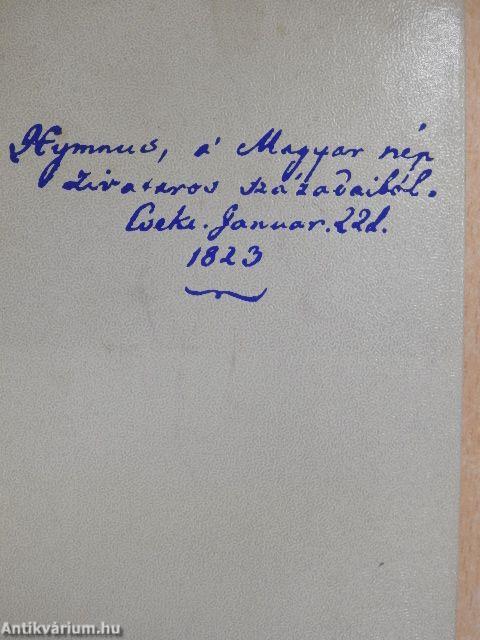 Hymnus, a' Magyar nép
zivataros századaiból.
Cseke. Januar. 22d.
1823
Antikvárium.hu